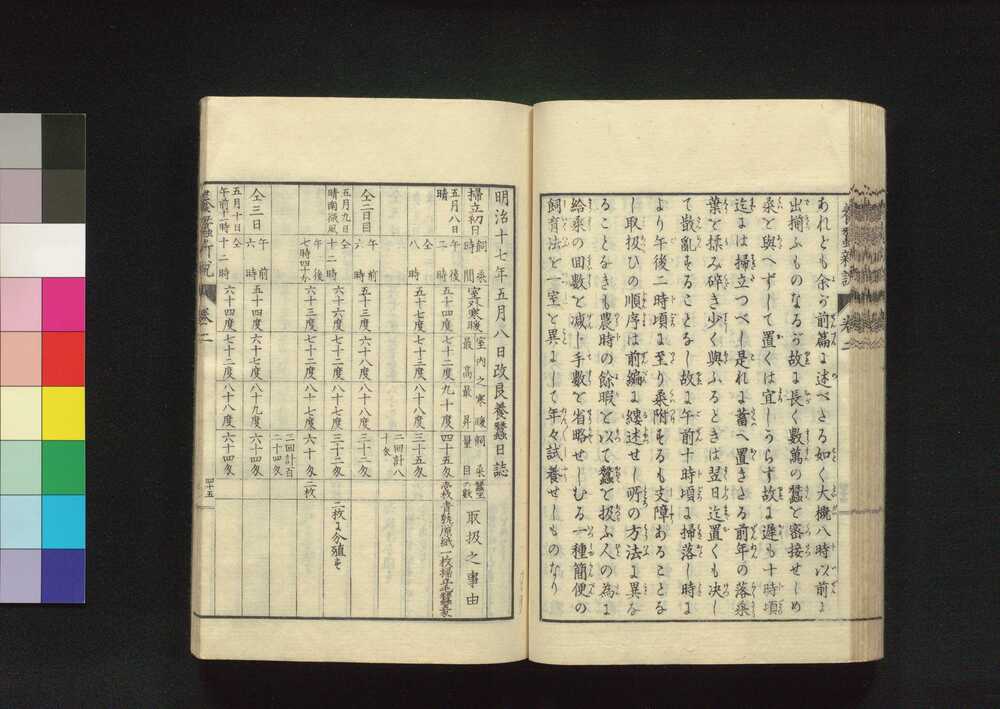 あれども余が前篇に述べさる如く大概八時以前に
出揃ふものなるが故に長く數萬の蠶を密接せしめ
桑を與へずして置くは宜しからず故に遲も十時頃
迄には掃立つべし是れに蓄へ置きさる前年の落桑
葉を揉み碎き少く與ふるときは翌日迄置くも决し
て散亂することなし故に午前十時頃に掃落し時に
より午後二時頃に至り桑附するも支障あることな
し取扱ひの順序は前編に縷述せし所の方法に異な
ることなきも農時の餘暇を以て蠶を扱ふ人の為に
給桑の回數を减し手數を省略せしむる一種簡便の
飼育法を一室を異にして年々試養せしものなり
明治十七年五月八日改良養蠶日誌
掃立初日 飼桑時間 室外寒暖 室内之寒暖 最高最昇 飼桑量目 蠶座の數 取扱之事由
五月八日晴 午後二時 五十四度 七十二度 九十度 四十五匁 壱枚 青熟原紙一枚掃立
仝 八時 五十七度 七十三度 八十八度 三十五匁
二回計八十匁
仝二日目 午前六時 五十三度 六十八度 八十八度 三十二匁
五月九日晴南微風 仝十二時 六十六度 七十六度 八十八度 三十二匁 二枚に分殖す
午後七時四十分 六十三度 七十二度 八十七度 六十匁 二枚
二回計百二十四匁
仝三日 午前六時 五十四度 六十七度 八十九度 六十四匁
五月十日仝午前十一時 十二時 六十四度 七十二度 八十八度 六十四匁
四十五
卷二